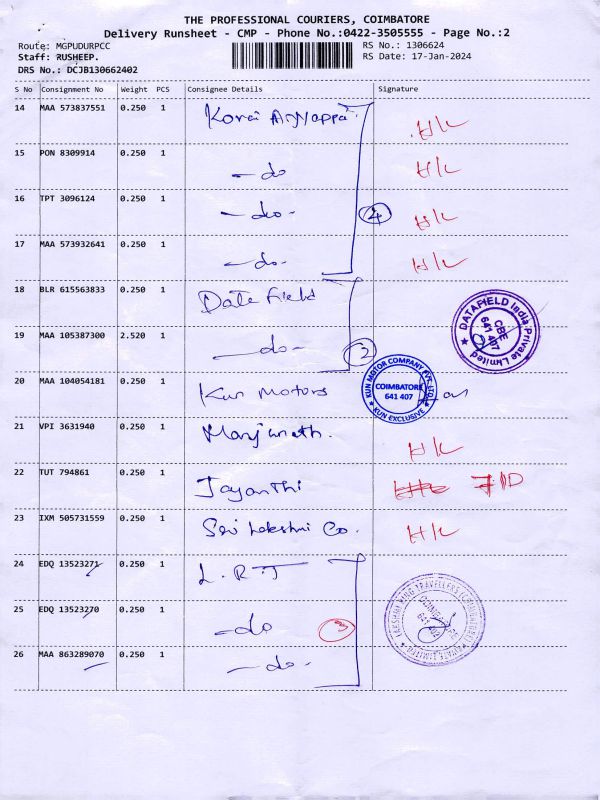 THE PROFESSIONAL COURIERS, COIMBATORE
Delivery Runsheet - CMP - Phone No.:0422-3505555 - Page No.:2
Route: MGPUDURPCC RS No.: 1306624
Staff: RUSHEEP. RS Date: 17-Jan-2024
DRS No.: DCJB130662402
S No Consignment No Weight PCS Consignee Details Signature
14 MAA 573837551 0.250 1 H/L
15 PON 8309914 0.250 1 -do H/L
16 TPT 3096124 0.250 1 -do- 4 H/L
17 MAA 573932641 0.250 1 -do- H/L
18 BLR 615563833 0.250 1 Date Field
19 MAA 105387300 2.520 1 -do- 2
DATAFIELD India Private Limited
CBE
641 407
20 MAA 104054181 0.250 1 Kun Motors
KUN MOTOR COMPANY PVT. LTD.
COIMBATORE
641 407
KUN EXCLUSIVE
21 VPI 3631940 0.250 1 Manjunath. H/L
22 TUT 794861 0.250 1 Jayanthi
23 IXM 505731559 0.250 1 Sri Lakshmi Co. H/L
24 EDQ 13523271 0.250 1 L.R.T
25 EDQ 13523270 0.250 1 -do
26 MAA 863289070 0.250 1 -do-